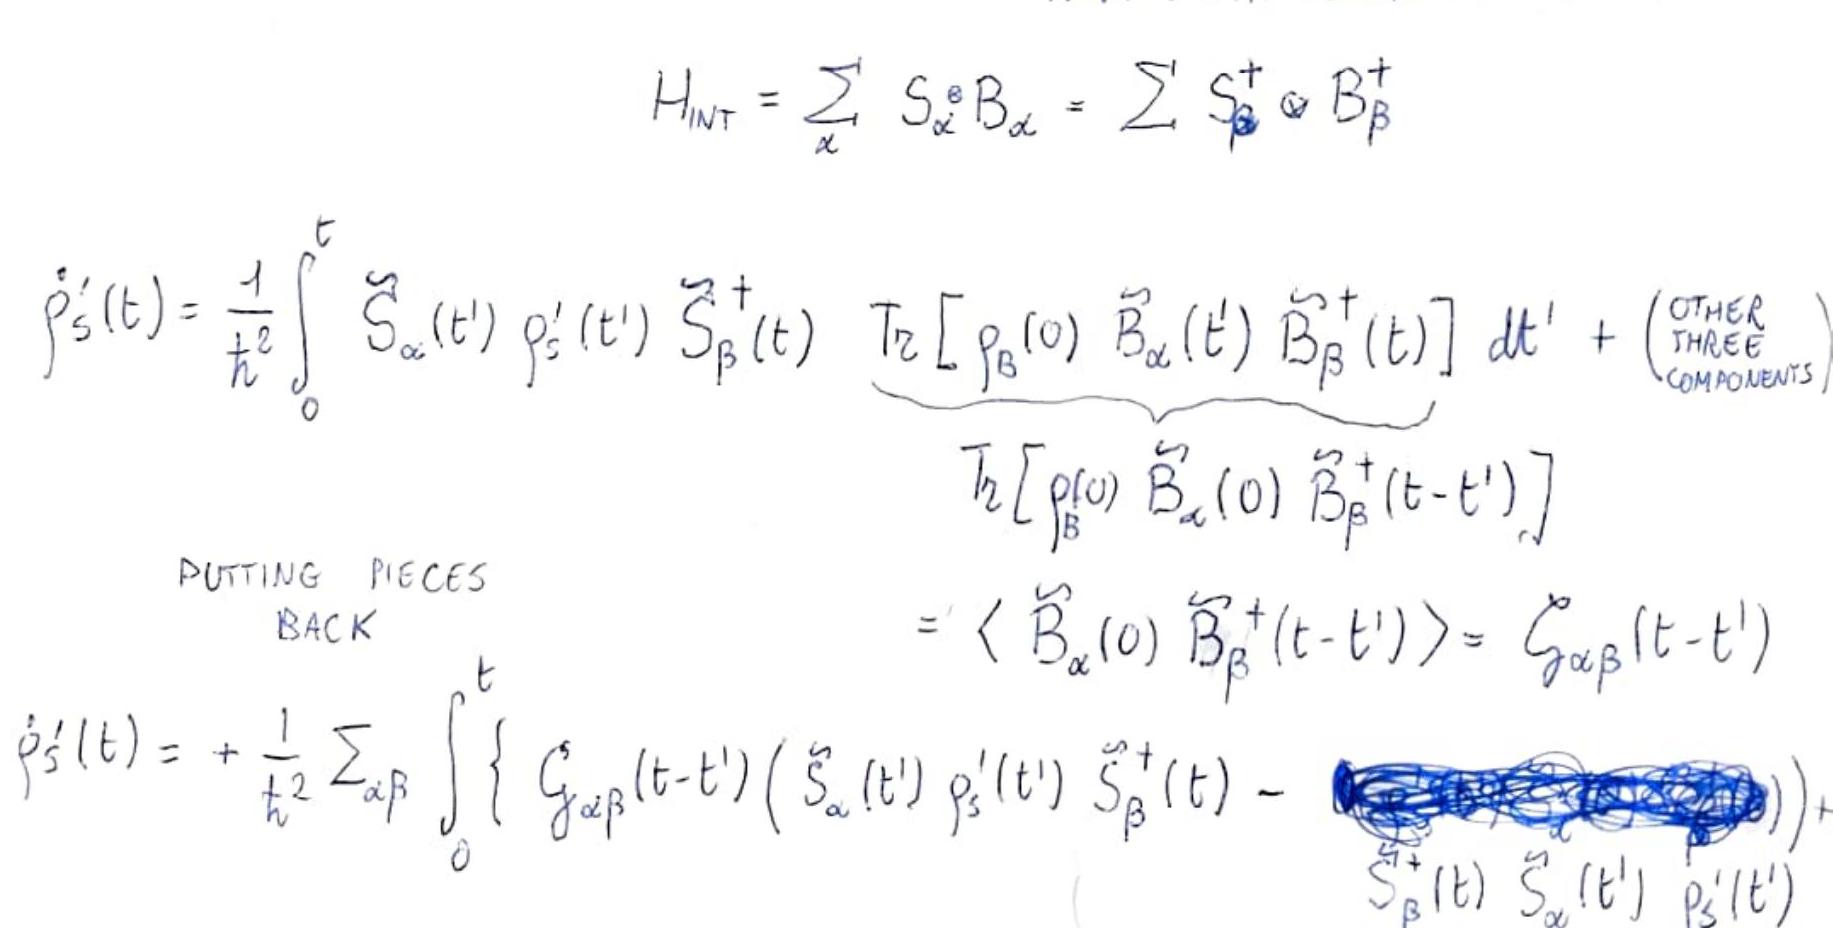 H_INT = Σ_α S_α ⊗ B_α = Σ S_β^† ⊗ B_β^†
ρ̇'_S(t) = 1/ħ² ∫_0^t S̃_α(t') ρ'_S(t') S̃_β^†(t) Tr[ρ_B(0) B̃_α(t') B̃_β^†(t)] dt' + (OTHER THREE COMPONENTS)
Tr[ρ_B(0) B̃_α(0) B̃_β^†(t-t')]
PUTTING PIECES
BACK
= ⟨B̃_α(0) B̃_β^†(t-t')⟩ = G_αβ(t-t')
ρ̇'_S(t) = + 1/ħ² Σ_αβ ∫_0^t { G_αβ(t-t') ( S̃_α(t') ρ'_S(t') S̃_β^†(t) - )) +
S̃_β^†(t) S̃_α(t') ρ'_S(t')